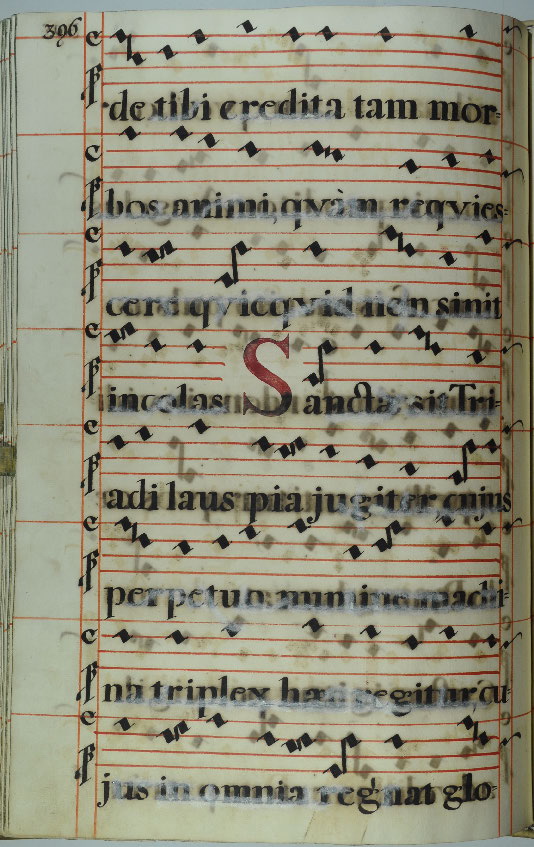 396
de tibi credita tam mor-
bos animi, quàm requies-
cere quicquid
sinit
incolas Sancta sit Tri-
adi laus pia jugiter, cujus
perpetuo numine
na triplex hæc regitur, cu-
jus in omnia regnat glo-